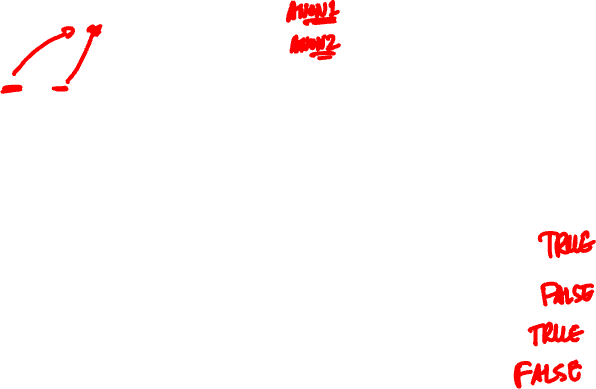 ANON1
ANON2
TRUE
FALSE
TRUE
FALSE